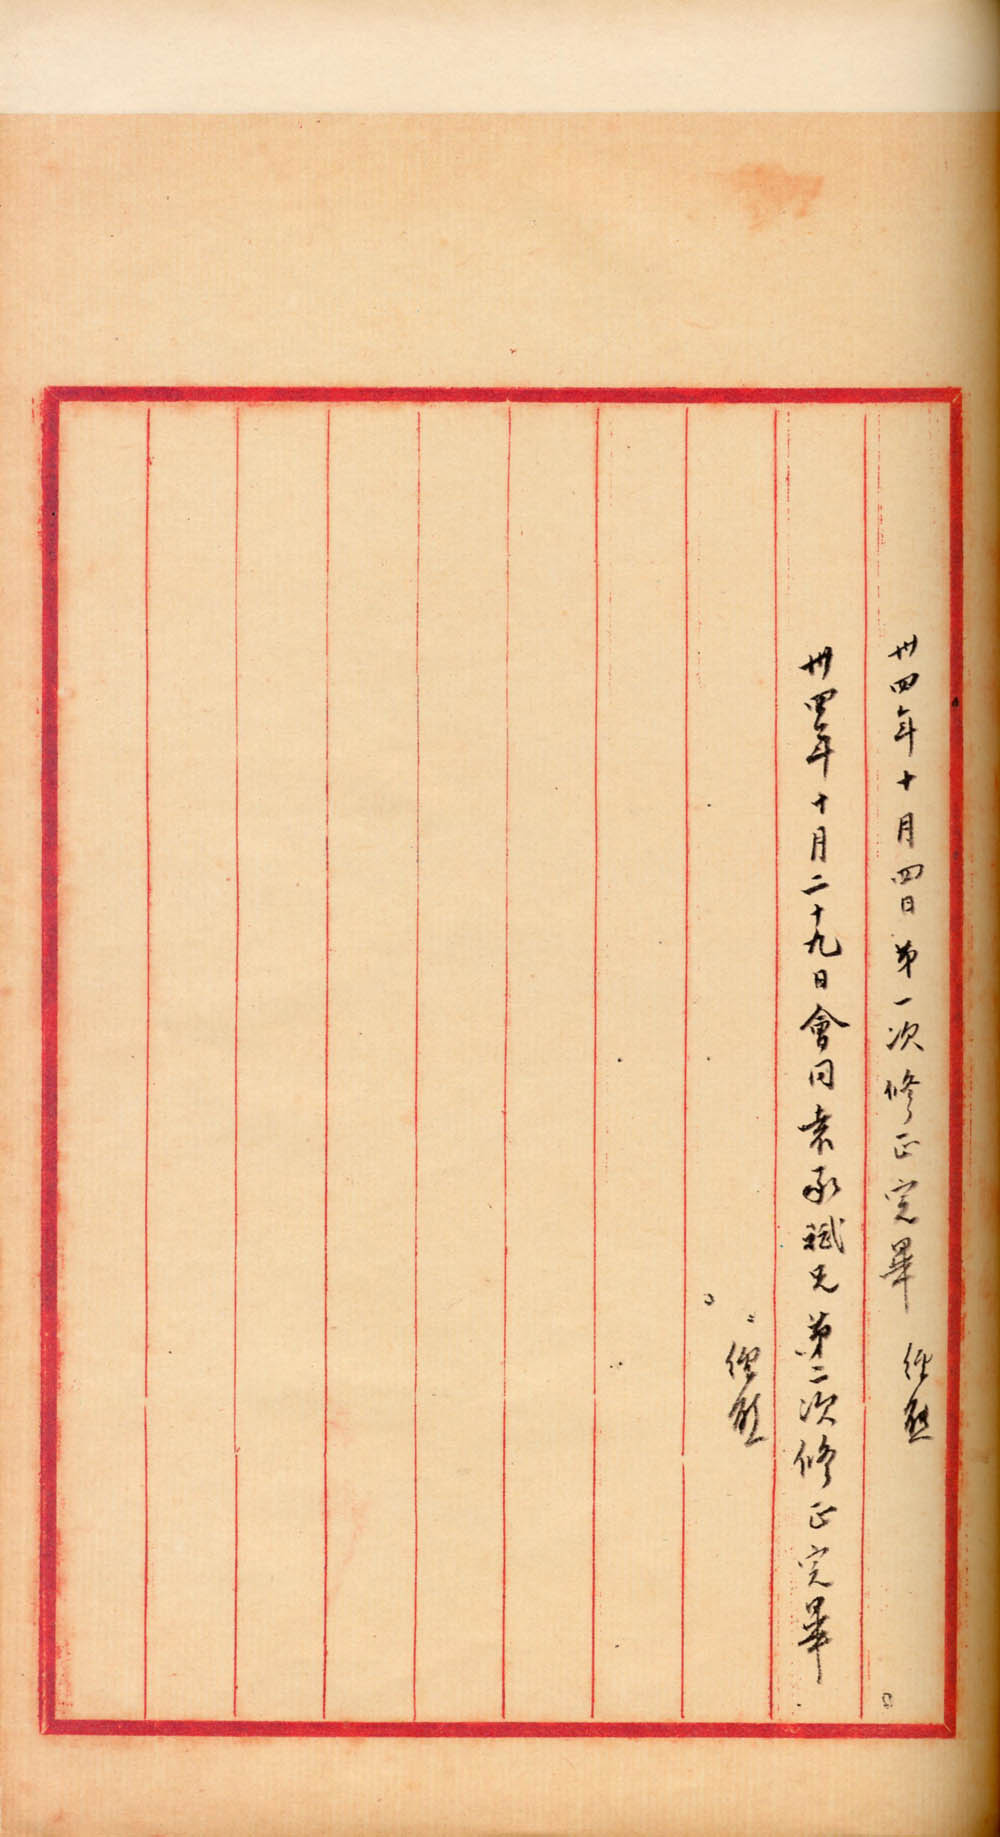 卅四年十月四日第一次修正完畢
卅四年十月二十九日會同袁承斌兄第二次修正完畢